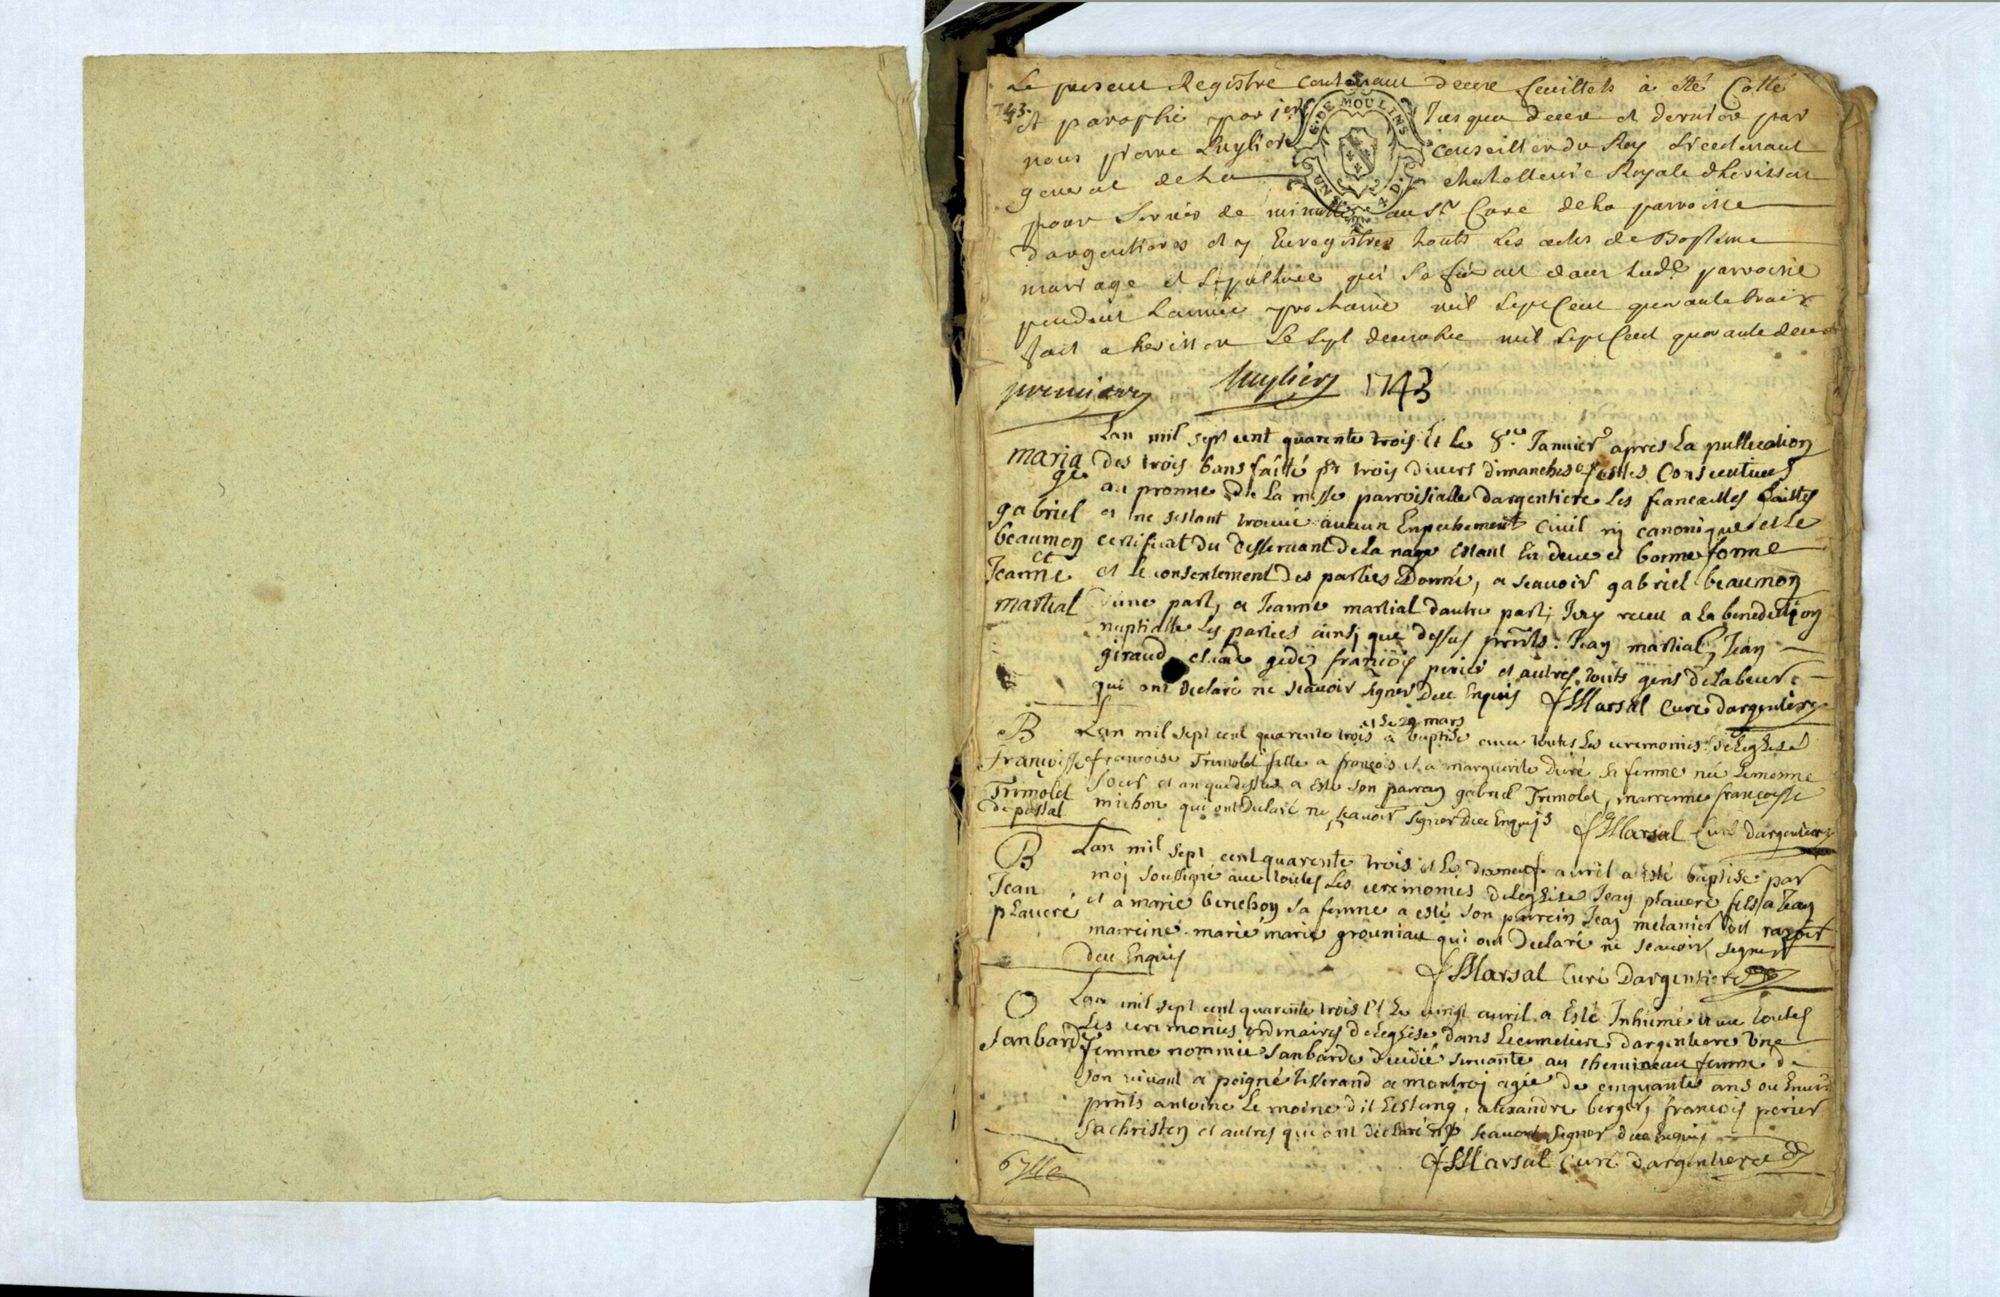 Le present Registre contenant deuze feuillets à eté Cotté
743.
et paraphé par 1er Jusqua deuze et dernier par
nous pierre Luylier conseiller du Roy Lieutenant
general de la chatellenie Royale dherisson
pour servir de minutte au Sr Cure de la parroisse
dargentieres et y Enregistrer touts les actes de Bapteme
mariage et sepulture qui se feront dans lad.e parroisse
pendant l'année prochaine mil sept Cent quarante trois
fait a herisson Le sept decembre mil sept Cent quarante deux
G. DE MOULINS
premier Luylier 1743
Lan mil sept cent quarente trois Et le 8.e Janvier apres La publication
maria
ge
des trois bans faitte pr trois divers dimanches festes Consecutives
au pronne de La messe parroisialle dargentiere les fiancailles faittes
gabriel
et ne sestant trouvé aucun Enpechement civil ny canonique et Le
beaumon
certificat du desservant de la nage estant En deue et bonne forme
et
Jeanne
et le consentement des parties donné, a scavoir gabriel beaumon
martial
dune part, et Jeanne martial dautre part, Jay receu a la benediction
nuptialle Les parties ainsj que dessus prnts: Jean martial, Jean
giraud, claude gedez françois perier et autres touts gens de labeur
qui ont declaré ne scavoir signer deue Enquis J Marsal Curé dargentiere
B
et le 29 mars
Lan mil sept cent quarente trois a baptisé avec toutes Les ceremonies de leglise
Françoisse
francoise Trimolet fille a françois et a marguerite duré sa femme née Le mesme
Trimolet
Jour et an que dessus a esté son parrain gabriel Trimolet, marrenne françoisse
de passal
michon qui ont declaré ne scavoir signer deue Enquis J Marsal Curé dargentiere
B
Lan mil sept cent quarente trois et Le dixneuf avril a esté baptisé par
Jean
moj soussigné avec toutes Les ceremonies de leglise Jean plaveré fils a Jean
plaveré
et a marie berchon sa femme a esté son parrein Jean melanier dit razoir
marreine marie marie grouniau qui ont declaré ne scavoir signer
deue Enquis
J Marsal Curé Dargentiere
O
Lan mil sept cent quarente trois Et Le vingt avril a Esté Inhumé avec toutes
Les ceremonies ordinaires de leglise dans Le cimetiere dargentiere Une
Sanbarde
femme nommée Sanbarde decedié servante au cheminau femme de
son vivant a peigné tisserand a montroj agée de cinquante ans ou Environ
prnts antoine Le moine dit Lestang, alexandre berger, francois perier
sachristen et autres qui ont declaré ne scavoir signer deue Enquis
J Marsal Curé dargentiere